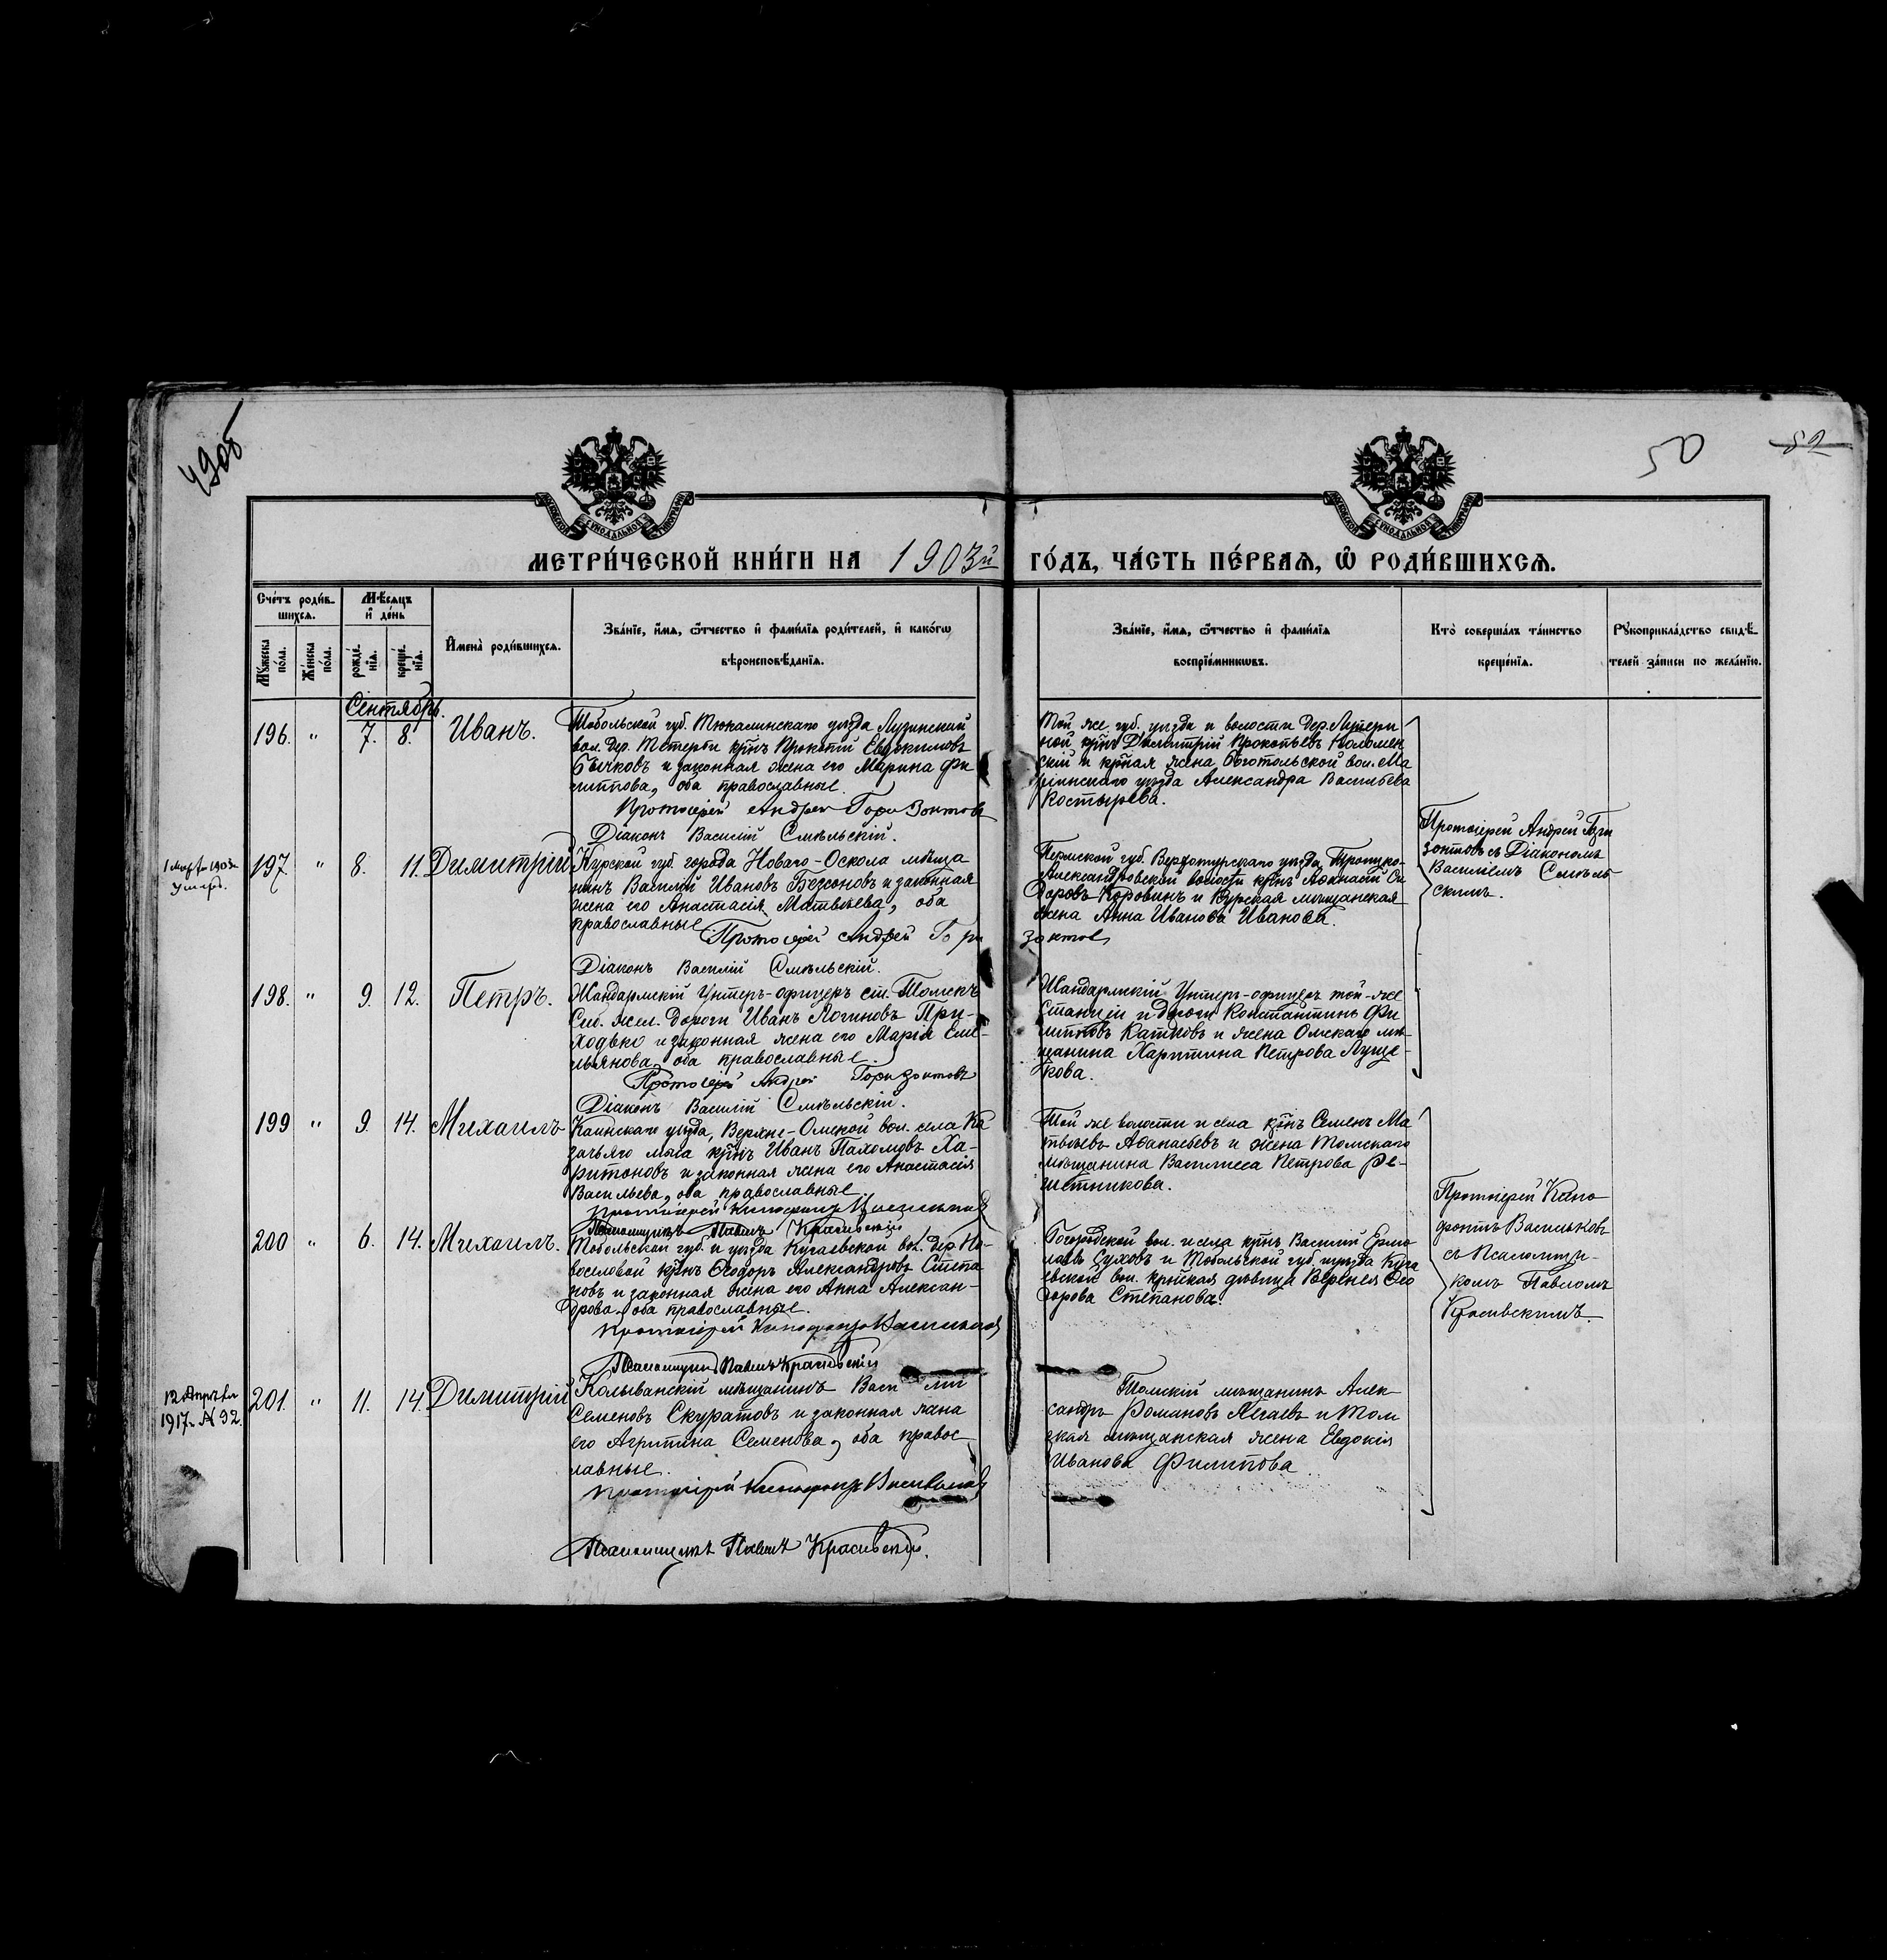 49об
50
52
МОСКОВСКОЙ СѴНОДАЛЬНОЙ ТИПОГРАФІИ
МОСКОВСКОЙ СѴНОДАЛЬНОЙ ТИПОГРАФІИ
МЕТРИ́ЧЕСКОЙ КНИ́ГИ НА 1903й ГО́ДЪ, ЧА́СТЬ ПЕ́РВАѦ, Ѡ҆ РОДИ́ВШИХСѦ.
Сче́тъ роди́в-
шихсѧ.
Мꙋ́жеска по́ла.
Же́нска по́ла.
Мѣ́сѧцъ и҆ де́нь
рожде́нїѧ.
креще́нїѧ.
И҆мена̀ роди́вшихсѧ.
Зва́нїе, и҆́мѧ, ѻ҆́тчество и҆ фами́лїѧ роди́телей, и҆ како́гѡ
вѣроисповѣ́данїѧ.
Зва́нїе, и҆́мѧ, ѻ҆́тчество и҆ фами́лїѧ
воспрїе́мникѡвъ.
Кто̀ соверша́лъ та́инство
креще́нїѧ.
Рꙋкоприкла́дство свидѣ́-
телей за́писи по жела́нїю.
Сентябрь.
196. " 7. 8. Иванъ.
Тобольской губ. Тюкалинскаго уѣзда Лузинской
вол. дер. Петерби крнъ Прокопій Евдокимовъ
Бычковъ и законная жена его Марина Фи
липпова, оба православные.
Протоіерей Андрей Горизонтовъ
Діаконъ Василій Смѣльскій.
Той же губ. уѣзда и волости дер.
ной крнъ Димитрій Прокопьевъ Коломен
скій и крная жена Боготольской вол. Ма
ріинскаго уѣзда Александра Васильева
Костырева.
Протоіерей Андрей Гори
зонтовъ съ Діакономъ
Василіемъ Смѣль
скимъ.
1 Марта 1903
Умеръ.
197 " 8. 11. Димитрій
Курской губ. города Новаго-Оскола мѣща
нинъ Василій Ивановъ Безсоновъ и законная
жена его Анастасія Матвѣева, оба
православные.
Протоіерей Андрей Гори
зонтовъ
Діаконъ Василій Смѣльскій.
Пермской губ. Верхотурскаго уѣзда Троицко-
Александровской волости крнъ Афанасій Си
доровъ Коровинъ и Курская мѣщанская
жена Анна Иванова Иванова.
198. " 9. 12. Петръ.
Жандармскій Унтеръ-офицеръ ст. Томскъ
Сиб. жел. дороги Иванъ Логиновъ При-
ходько и законная жена его Марія Еме-
льянова, оба православные.
Протоіерей Андрей Горизонтовъ
Діаконъ Василій Смѣльскій.
Жандармскій Унтеръ-офицеръ той-же
станціи и дороги Константинъ Фи
липповъ Катковъ и жена Омскаго мѣ
щанина Харитина Петрова Луще-
кова.
199 " 9. 14. Михаилъ
Каинскаго уѣзда, Верхне-Омской вол. села Ка
зачьяго мыса крнъ Иванъ Пахомовъ Ха-
ритоновъ и законная жена его Анастасія
Васильева, оба православные
Протоіерей Ксенофонтъ Васильковъ
Псаломщикъ Павелъ Красивскій
Той же волости и села крнъ Семенъ Ма
твѣевъ Афанасьевъ и жена Томскаго
мѣщанина Василиса Петрова Ре-
шетникова.
200 " 6. 14. Михаилъ.
Тобольской губ. и уѣзда Кугаевской вол. дер. Но-
воселовой крнъ Ѳеодоръ Александровъ Степа
новъ и законная жена его Анна Алексан-
дрова, оба православные.
Протоіерей Ксенофонтъ Васильковъ
Псаломщикъ Павелъ Красивскій
Богородской вол. и села крнъ Василій Ермо
лаевъ Суховъ и Тобольской губ. и уѣзда Куга
евской вол. крнская дѣвица Веренея Ѳео
дорова Степанова.
Протоіерей Ксено
фонтъ Васильковъ
съ Псаломщи-
комъ Павломъ
Красивскимъ.
12 Апрѣля
1917 г. № 92.
201. " 11. 14. Димитрій
Колыванскій мѣщанинъ Василій
Семеновъ Скуратовъ и законная жена
его Агрипина Семенова, оба правос-
лавные.
Протоіерей Ксенофонтъ Васильковъ
Псаломщикъ Павелъ Красивскій.
Томскій мѣщанинъ Алек-
сандръ Романовъ Легаевъ и Том
ская мѣщанская жена Евдокія
Иванова Филипова